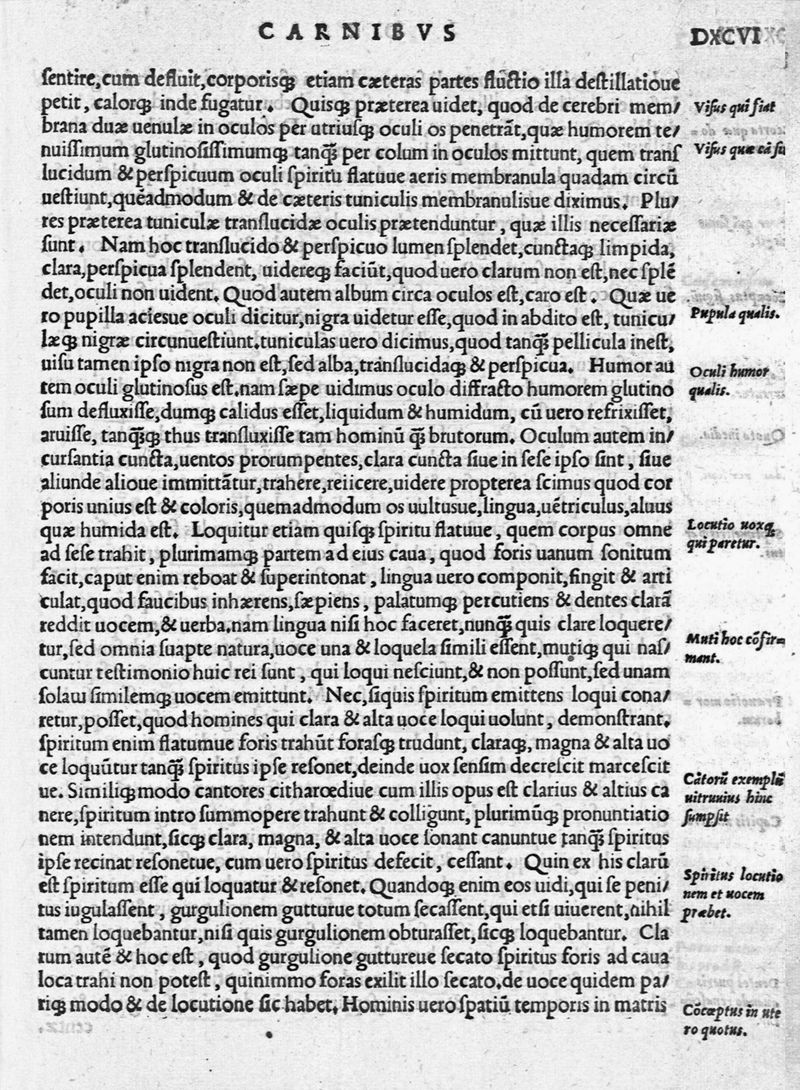 CARNIBVS
DXCVI
sentire,cum defluit,corporisq; etiam cæteras partes fluctio illa destillatioue
petit, calorq; inde fugatur. Quisq; præterea uidet, quod de cerebri mem/
brana duæ uenulæ in oculos per utriusq; oculi os penetrãt,quæ humorem te/
nuissimum glutinosissimumq; tanq̃ per colum in oculos mittunt, quem trans
lucidum & perspicuum oculi spiritu flatuue aeris membranula quadam circũ
uestiunt,quẽadmodum & de cæteris tuniculis membranulisue diximus. Plu/
res præterea tuniculæ translucidæ oculis prætenduntur, quæ illis necessariæ
sunt. Nam hoc translucido & perspicuo lumen splendet,cunctaq; limpida,
clara,perspicua splendent, uidereq; faciũt,quod uero clarum non est,nec splẽ
det,oculi non uident. Quod autem album circa oculos est,caro est. Quæ ue
ro pupilla aciesue oculi dicitur,nigra uidetur esse,quod in abdito est, tunicu/
læq; nigræ circunuestiunt.tuniculas uero dicimus,quod tanq̃ pellicula inest,
uisu tamen ipso nigra non est,sed alba,translucidaq; & perspicua. Humor au
tem oculi glutinosus est.nam sæpe uidimus oculo diffracto humorem glutino
sum defluxisse,dumq; calidus esset,liquidum & humidum, cũ uero refrixisset,
aruisse, tanq̃q; thus transfluxisse tam hominũ q̃ brutorum. Oculum autem in/
cursantia cuncta,uentos prorumpentes,clara cuncta siue in sese ipso sint, siue
aliunde alioue immittãtur,trahere,reiicere,uidere propterea scimus quod cor
poris unius est & coloris,quemadmodum os uultusue,lingua,uẽtriculus,aluus
quæ humida est. Loquitur etiam quisq; spiritu flatuue, quem corpus omne
ad sese trahit, plurimamq; partem ad eius caua, quod foris uanum sonitum
facit,caput enim reboat & superintonat, lingua uero componit,fingit & arti
culat,quod faucibus inhærens,sæpiens, palatumq; percutiens & dentes clarã
reddit uocem,& uerba.nam lingua nisi hoc faceret,nunq̃ quis clare loquere/
tur,sed omnia suapte natura,uoce una & loquela simili essent,mutiq; qui nas/
cuntur testimonio huic rei sunt, qui loqui nesciunt,& non possunt,sed unam
solam similemq; uocem emittunt. Nec,siquis spiritum emittens loqui cona/
retur,posset,quod homines qui clara & alta uoce loqui uolunt, demonstrant.
spiritum enim flatumue foris trahũt forasq; trudunt, claraq;, magna & alta uo
ce loquũtur tanq̃ spiritus ipse resonet,deinde uox sensim decrescit marcescit
ue. Similiq;modo cantores citharœdiue cum illis opus est clarius & altius ca
nere,spiritum intro summopere trahunt & colligunt, plurimũq; pronuntiatio
nem intendunt,sicq; clara, magna, & alta uoce sonant canuntue tanq̃ spiritus
ipse recinat resonetue, cum uero spiritus defecit, cessant. Quin ex his clarũ
est spiritum esse qui loquatur & resonet. Quandoq; enim eos uidi,qui se peni/
tus iugulassent, gurgulionem gutturue totum secassent,qui etsi uiuerent,nihil
tamen loquebantur,nisi quis gurgulionem obturasset,sicq; loquebantur. Cla
rum autẽ & hoc est, quod gurgulione guttureue secato spiritus foris ad caua
loca trahi non potest, quinimmo foras exilit illo secato.de uoce quidem pa/
riq; modo & de locutione sic habet. Hominis uero spatiũ temporis in matris
Visus qui fiat
Visus quæ cã sit
Pupula qualis.
Oculi humor
qualis.
Locutio uoxq;
qui paretur.
Muti hoc cõfir=
mant.
Cãtorũ exemplũ
uitruuius hinc
sumpsit
Spiritus locutio
nem et uocem
præbet.
Cõceptus in ute
ro quotus.